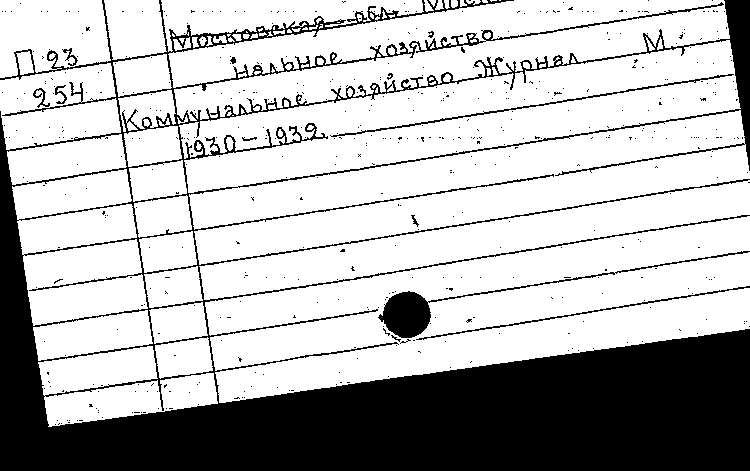 Московская обл.
П 23 нальное хозяйство.
254 Коммунальное хозяйство Журнал М.,
1930-1932.